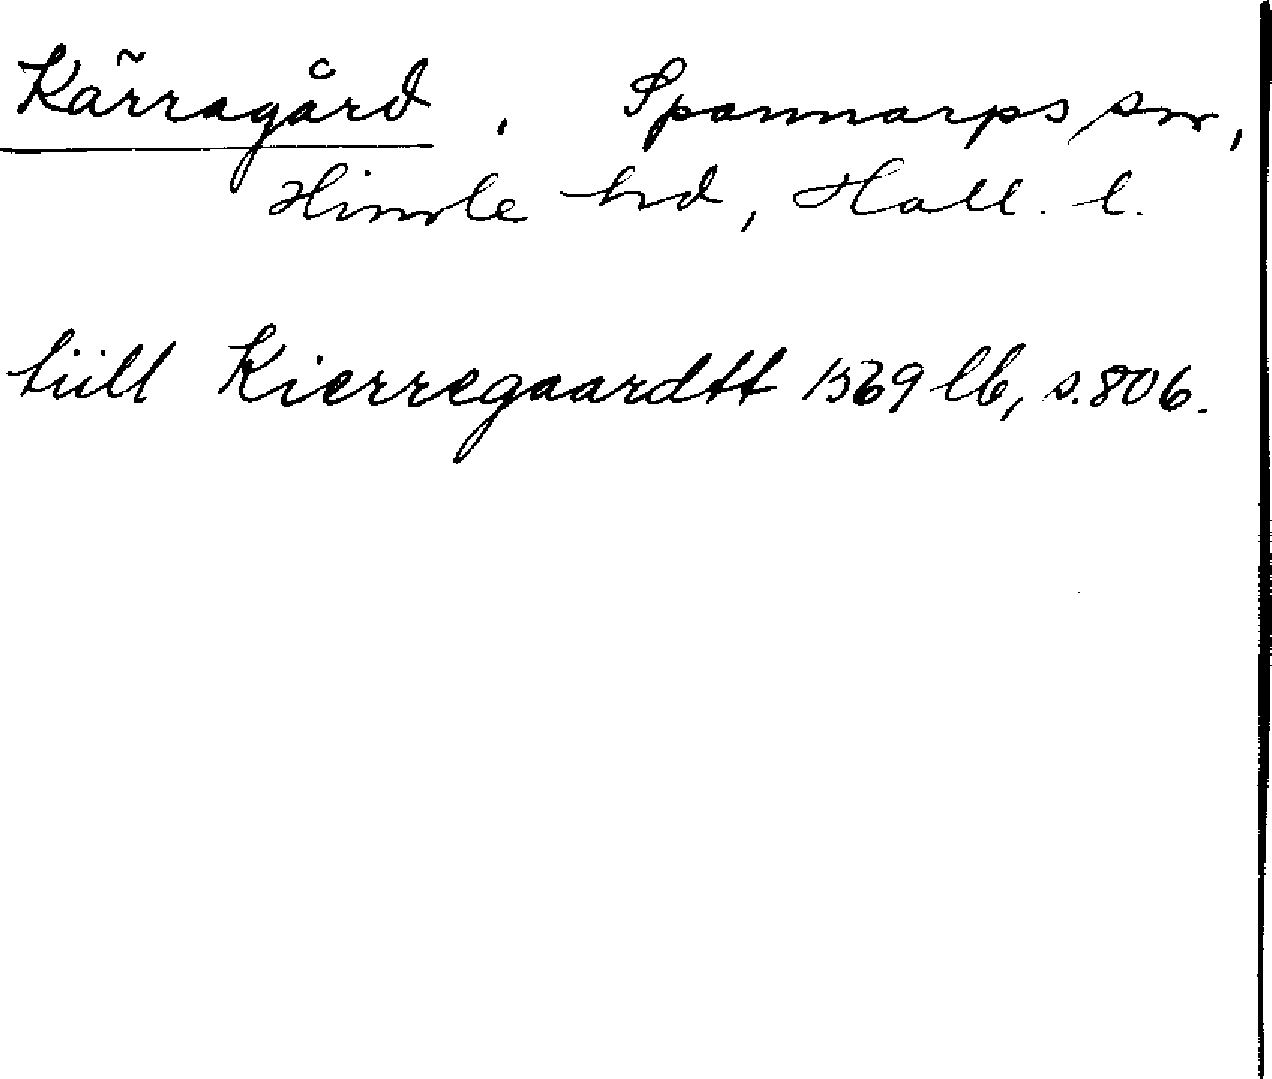 Kärragård, Spannarps sn,
Himle hd, Hall. l.
tiill Kierregaardtt 1569 lb, s. 806.